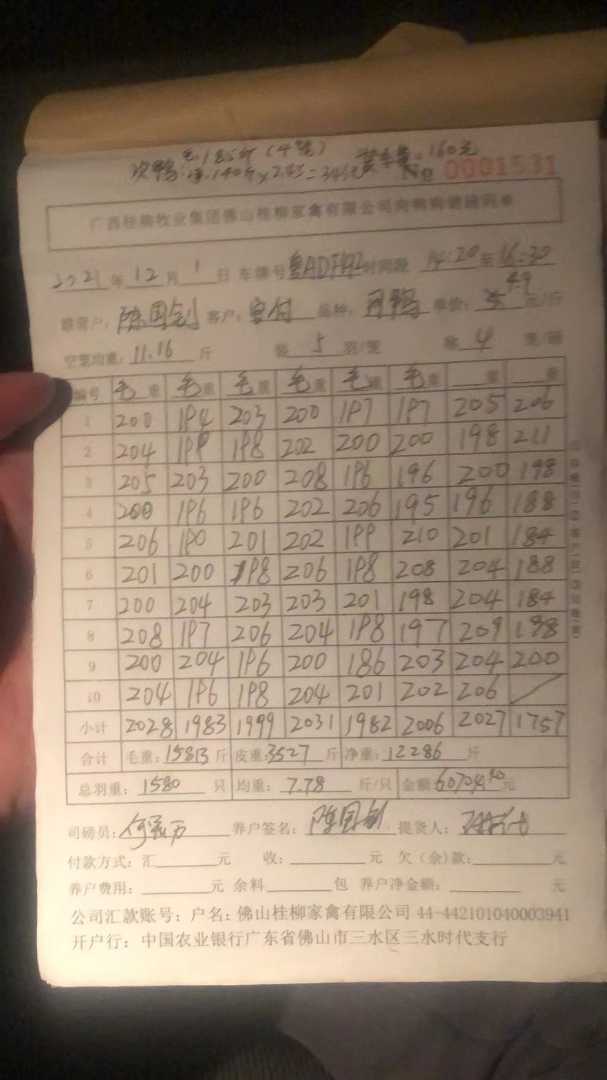 次鸭 毛185斤(4笼)
净:140斤×2.45=343元 装车费:160元
№ 0001531
广西桂柳牧业集团佛山桂柳家禽有限公司肉鸭购销码单
2021年12月1日 车牌号 时间段 14:20至16:30
养户: 陈国钊 客户: 品种: 单价: 4.9 元/斤
空笼均重: 11.16 斤 装 5 羽/笼 称 4 笼/磅
编号 毛重 毛重 毛重 毛重 毛重 毛重 重 重
1 200 194 203 200 197 197 205 206
2 204 199 198 202 200 200 198 211
3 205 203 200 208 196 196 200 198
4 200 196 196 202 206 195 196 188
5 206 190 201 202 199 210 201 184
6 201 200 198 206 198 208 204 188
7 200 204 203 203 201 198 204 184
8 208 197 206 204 198 197 209 198
9 200 204 196 200 186 203 204 200
10 204 196 198 204 201 202 206
小计 2028 1983 1999 2031 1982 2006 2027 1757
合计 毛重: 15813 斤 皮重: 3527 斤 净重: 12286 斤
总羽重: 1580 只 均重: 7.78 斤/只 金额: 元
司磅员: 养户签名: 陈国钊 提货人:
付款方式: 汇 元 收: 元 欠(余)款: 元
养户费用: 元 余料 包 养户净金额: 元
公司汇款账号: 户名: 佛山桂柳家禽有限公司 44-442101040003941
开户行: 中国农业银行广东省佛山市三水区三水时代支行